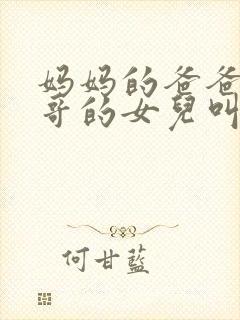 妈妈的爸爸
哥的女兒叫
何甘藍